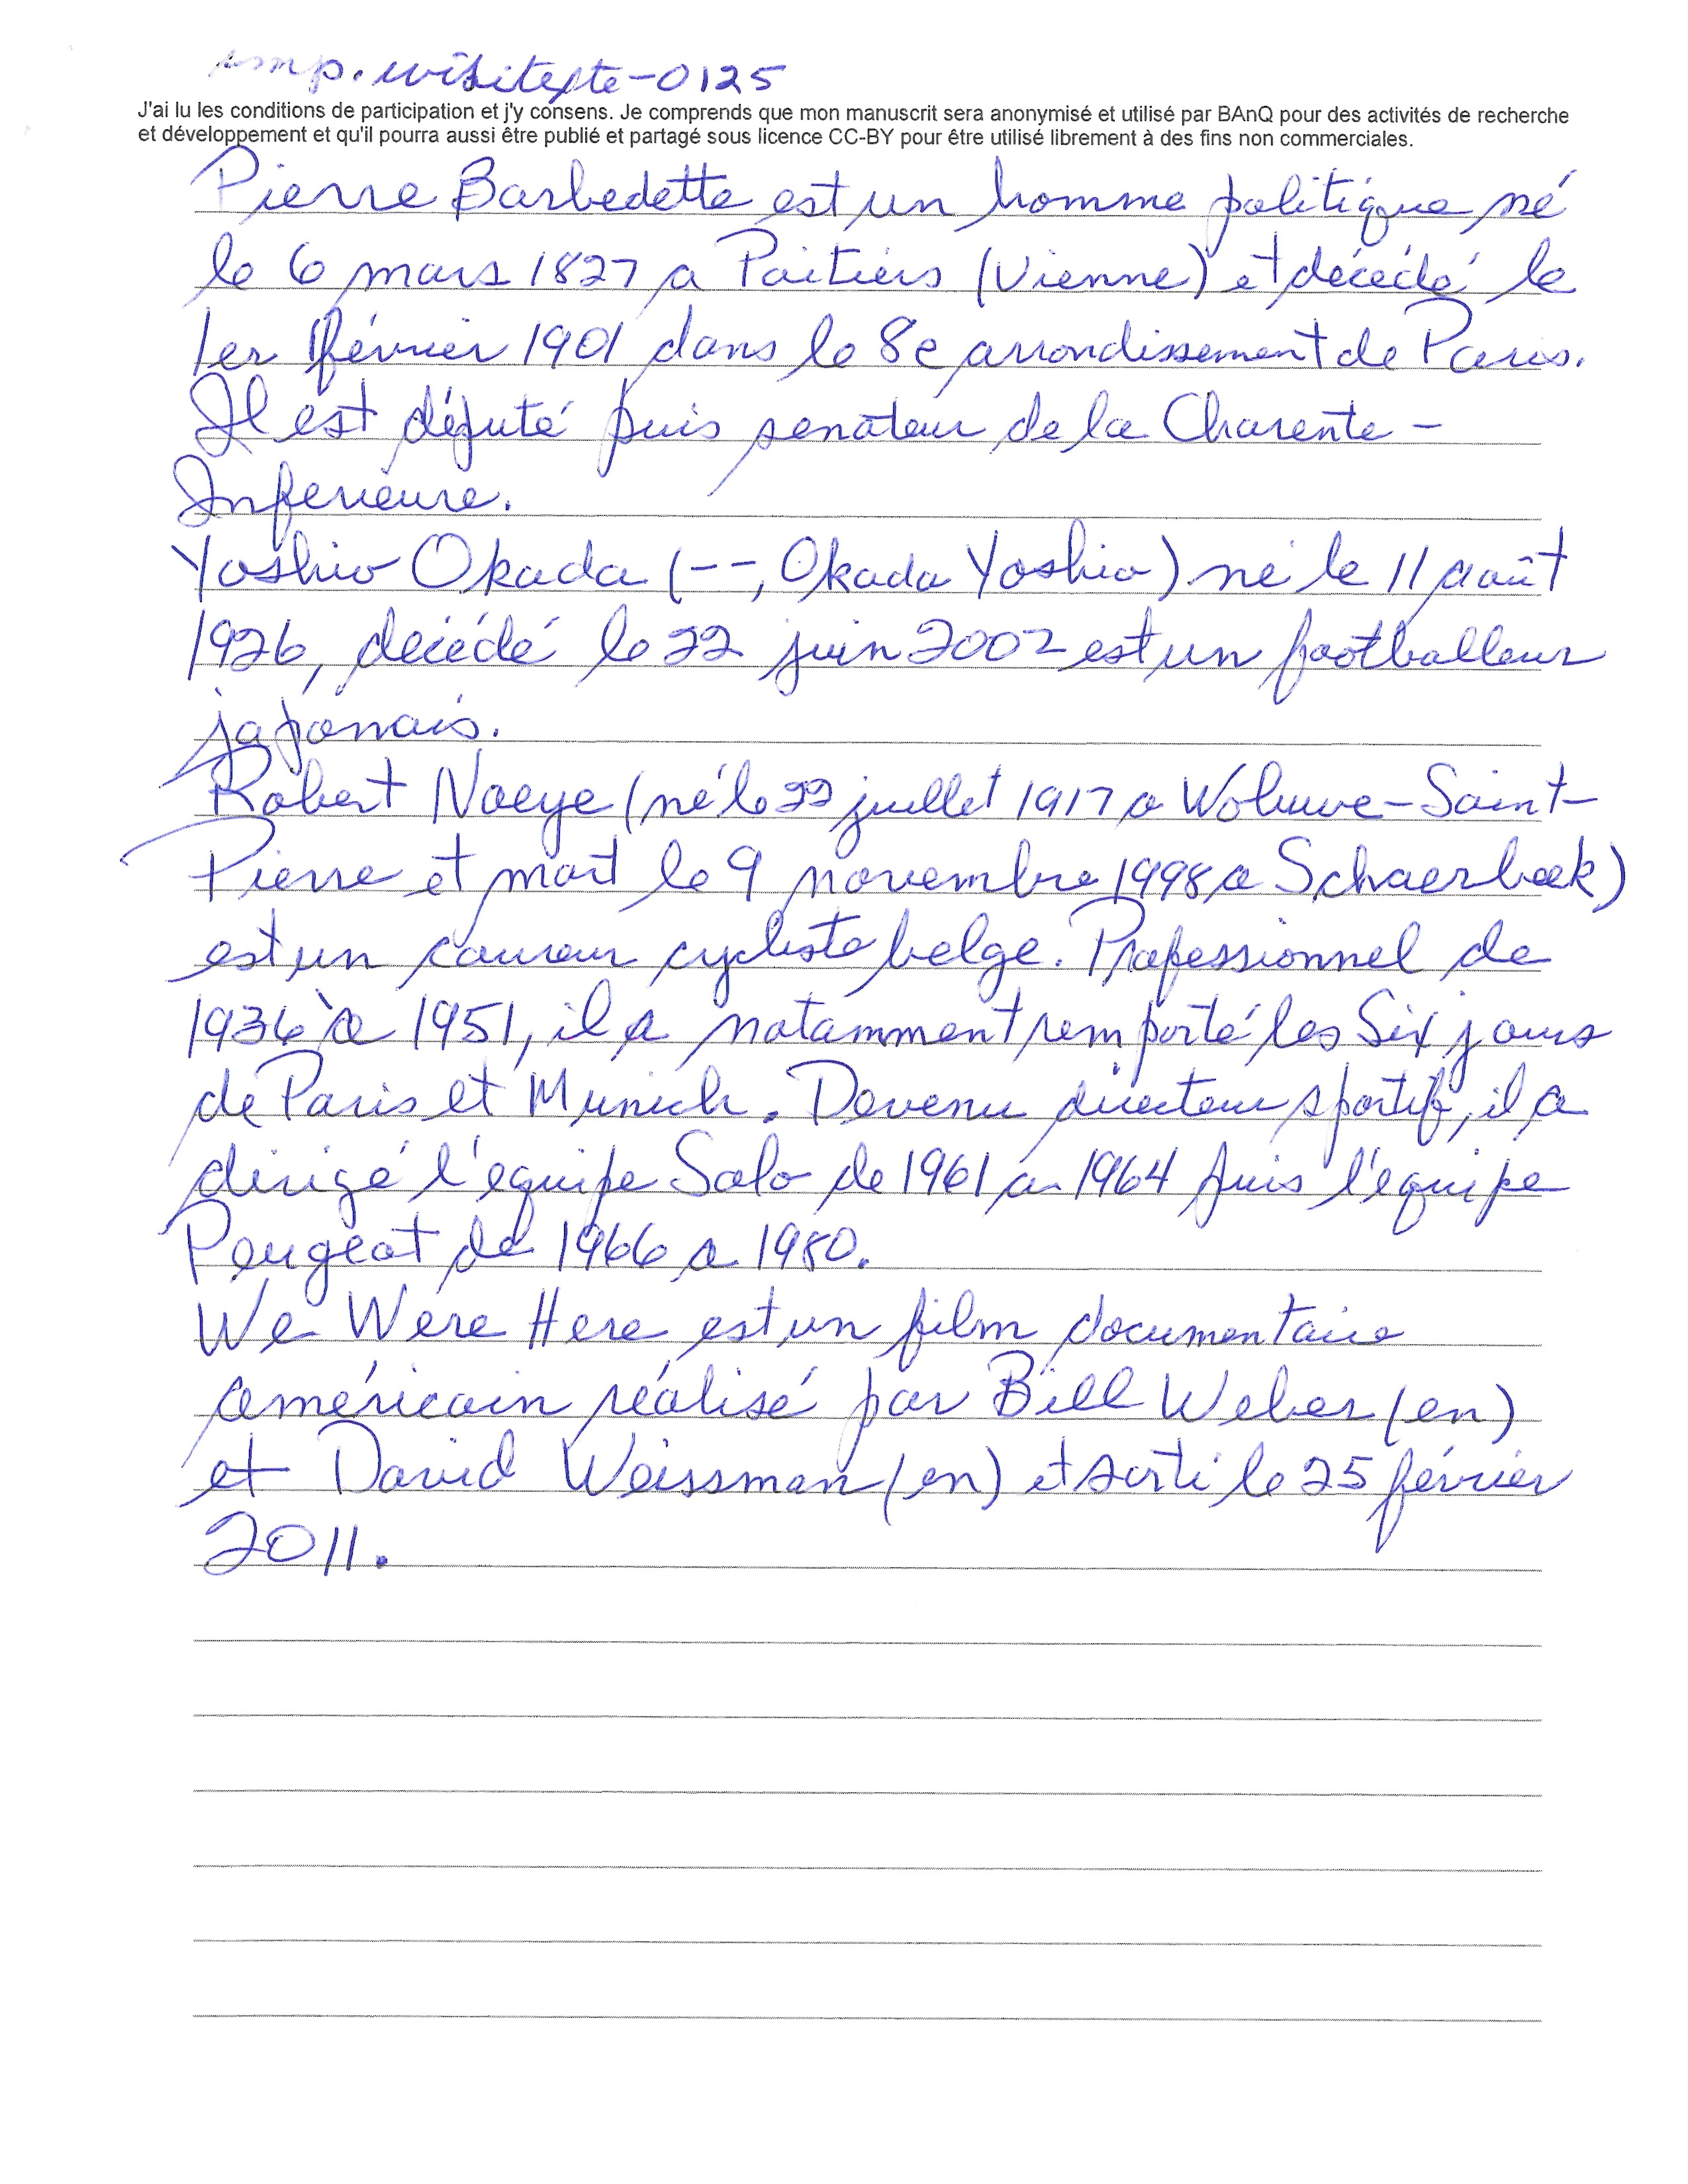 smp.wikitexte-0125
J'ai lu les conditions de participation et j'y consens. Je comprends que mon manuscrit sera anonymisé et utilisé par BAnQ pour des activités de recherche
et développement et qu'il pourra aussi être publié et partagé sous licence CC-BY pour être utilisé librement à des fins non commerciales.
Pierre Barbedette est un homme politique né
le 6 mars 1827 a Poitiers (Vienne) et décédé le
1er février 1901 dans le 8e arrondissement de Paris.
Il est député puis senateur de la Charente-
Inferieure.
Yoshio Okada (--, Okada Yoshio) né le 11 août
1926, décédé le 22 juin 2002 est un footballeur
japonais.
Robert Naeye (né le 22 juillet 1917 a Woluwe-Saint-
Pierre et mort le 9 novembre 1998 a Schaerbeek)
est un coureur cycliste belge. Professionnel de
1936 à 1951, il a notamment remporté les Six jours
de Paris et Munich. Devenu directeur sportif, il a
dirigé l'equipe Solo de 1961 a 1964 puis l'equipe
Peugeot de 1966 a 1980.
We Were Here est un film documentaire
américain réalisé par Bill Weber (en)
et David Weissman (en) et sorti le 25 février
2011.